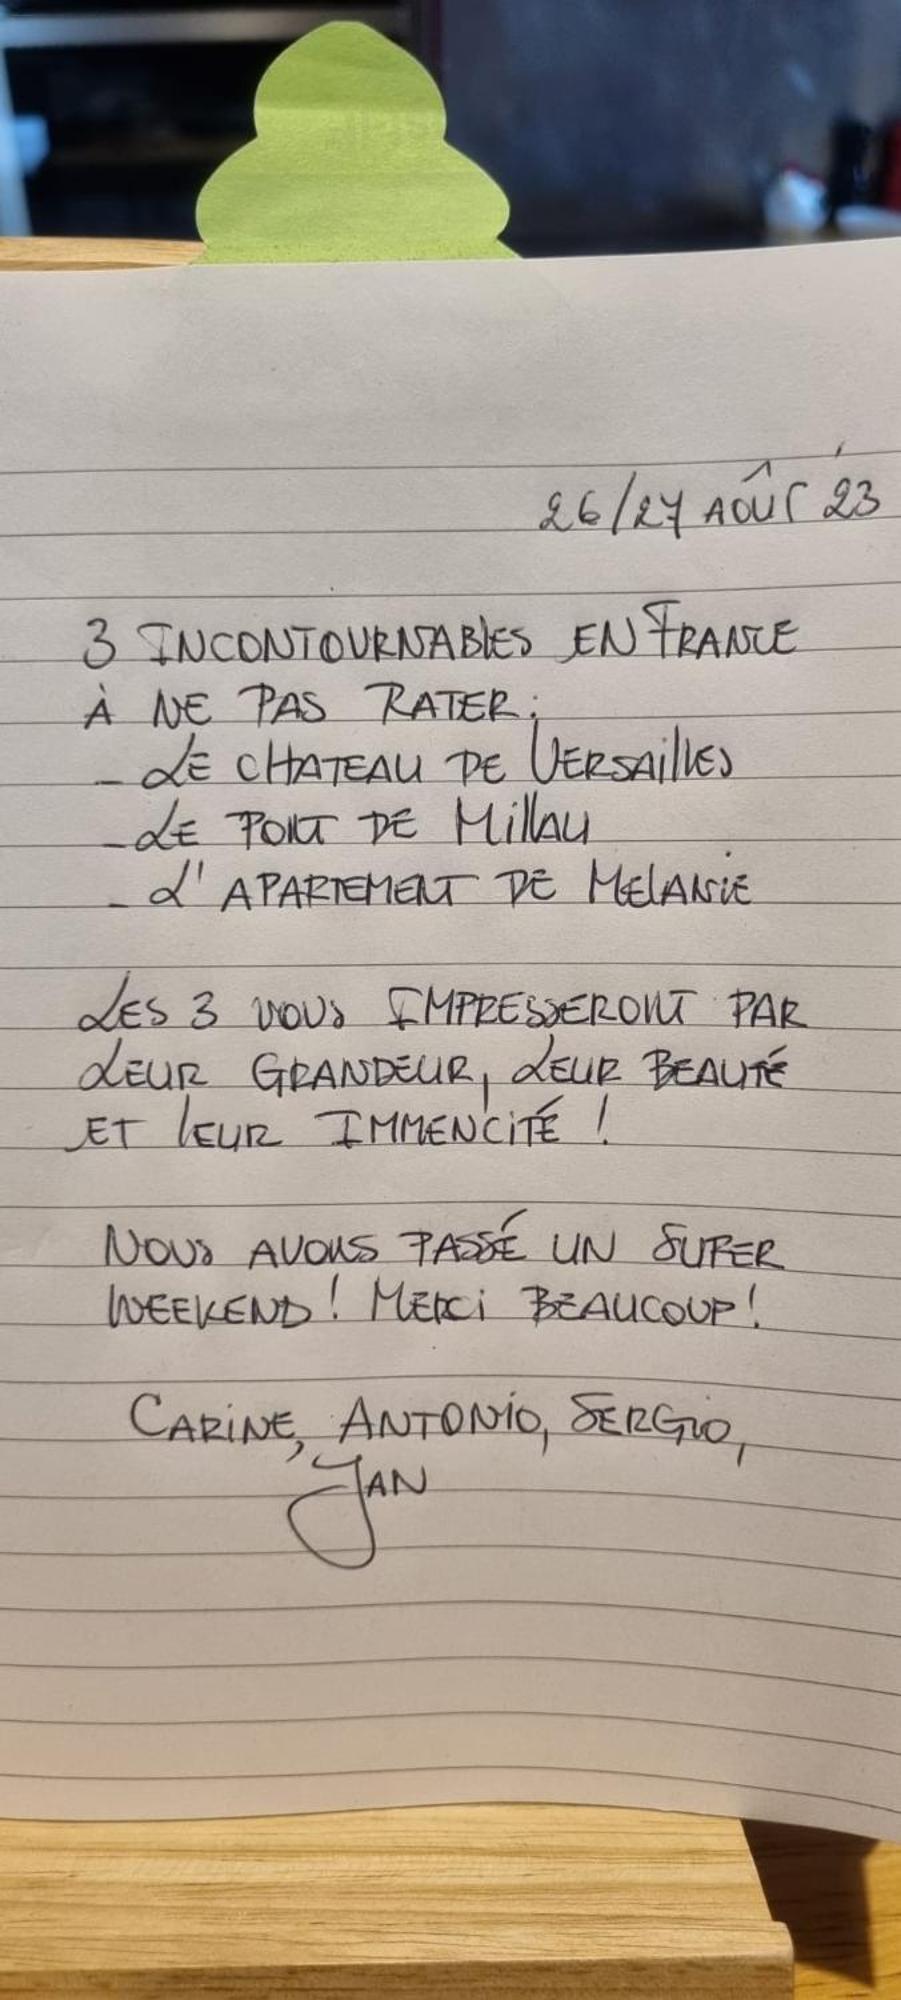 26/27 AOÛT '23
3 INCONTOURNABLES EN FRANCE
À NE PAS RATER:
- LE CHATEAU DE VERSAILLES
- LE PONT DE MILLAU
- L'APARTEMENT DE MELANIE
LES 3 VOUS IMPRESSERONT PAR
LEUR GRANDEUR, LEUR BEAUTÉ
ET LEUR IMMENCITÉ !
NOUS AVONS PASSÉ UN SUPER
WEEKEND! MERCI BEAUCOUP!
CARINE, ANTONIO, SERGIO,
JAN